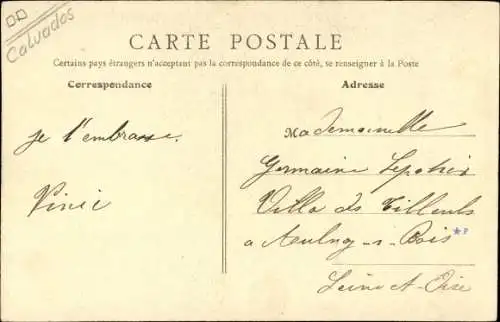 Calvados
CARTE POSTALE
Certains pays étrangers n'acceptent pas la correspondance de ce côté, se renseigner à la Poste
Correspondance
Adresse
je t'embrasse.
Mademoiselle
Germaine
Villa des Tilleuls
a Aulnay-s-Bois
Seine et Oise